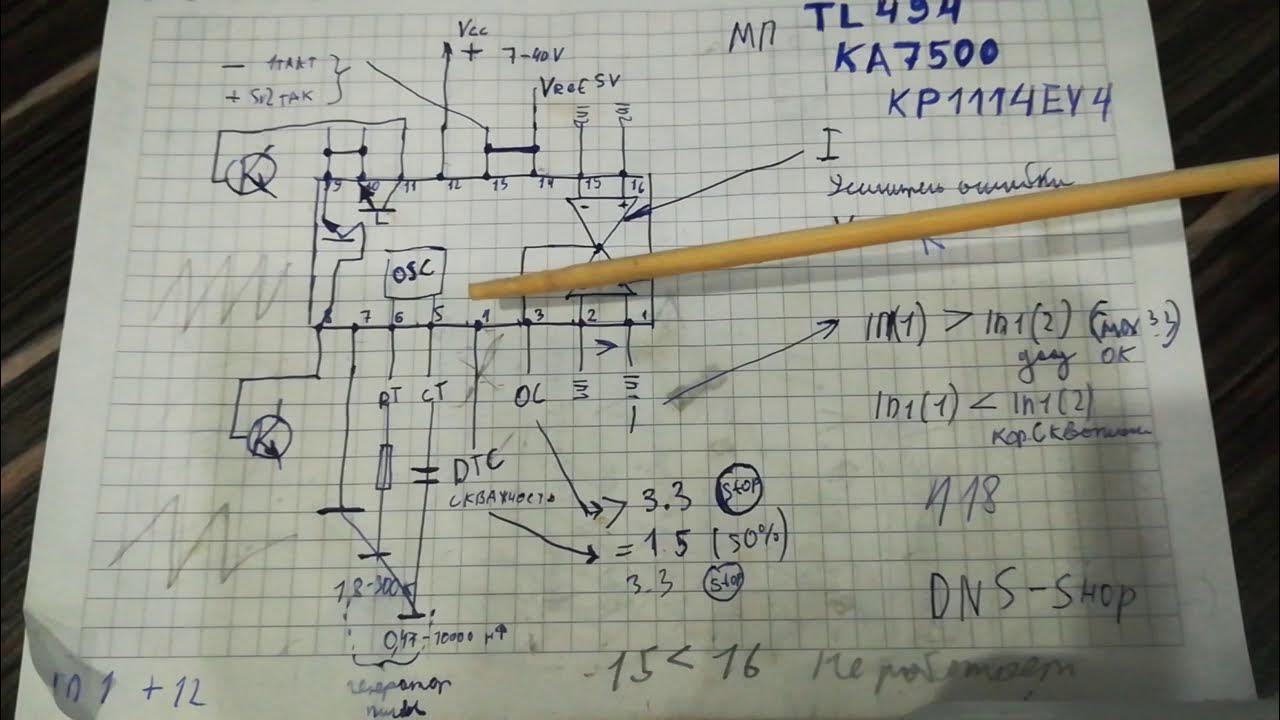 МП TL494
KA7500
КР1114ЕУ4
Vcc
+ 7-40V
- 1TAKT
+ 5V2TAK
VREF 5V
I
Усилитель ошибки
K
9 10 11 12 13 14 15 16
- +
OSC
8 7 6 5 4 3 2 1
RT CT OC
In(1) > In1(2) (max 3.3)
OK
In1(1) < In1(2)
K
DTC
скважность
> 3.3 Stop
= 1.5 (50%)
3.3 Stop
П18
DNS-Shop
1,8-500к
0,47-10000 нФ
генератор
пилы
15 < 16 Не работает
In 1 +12